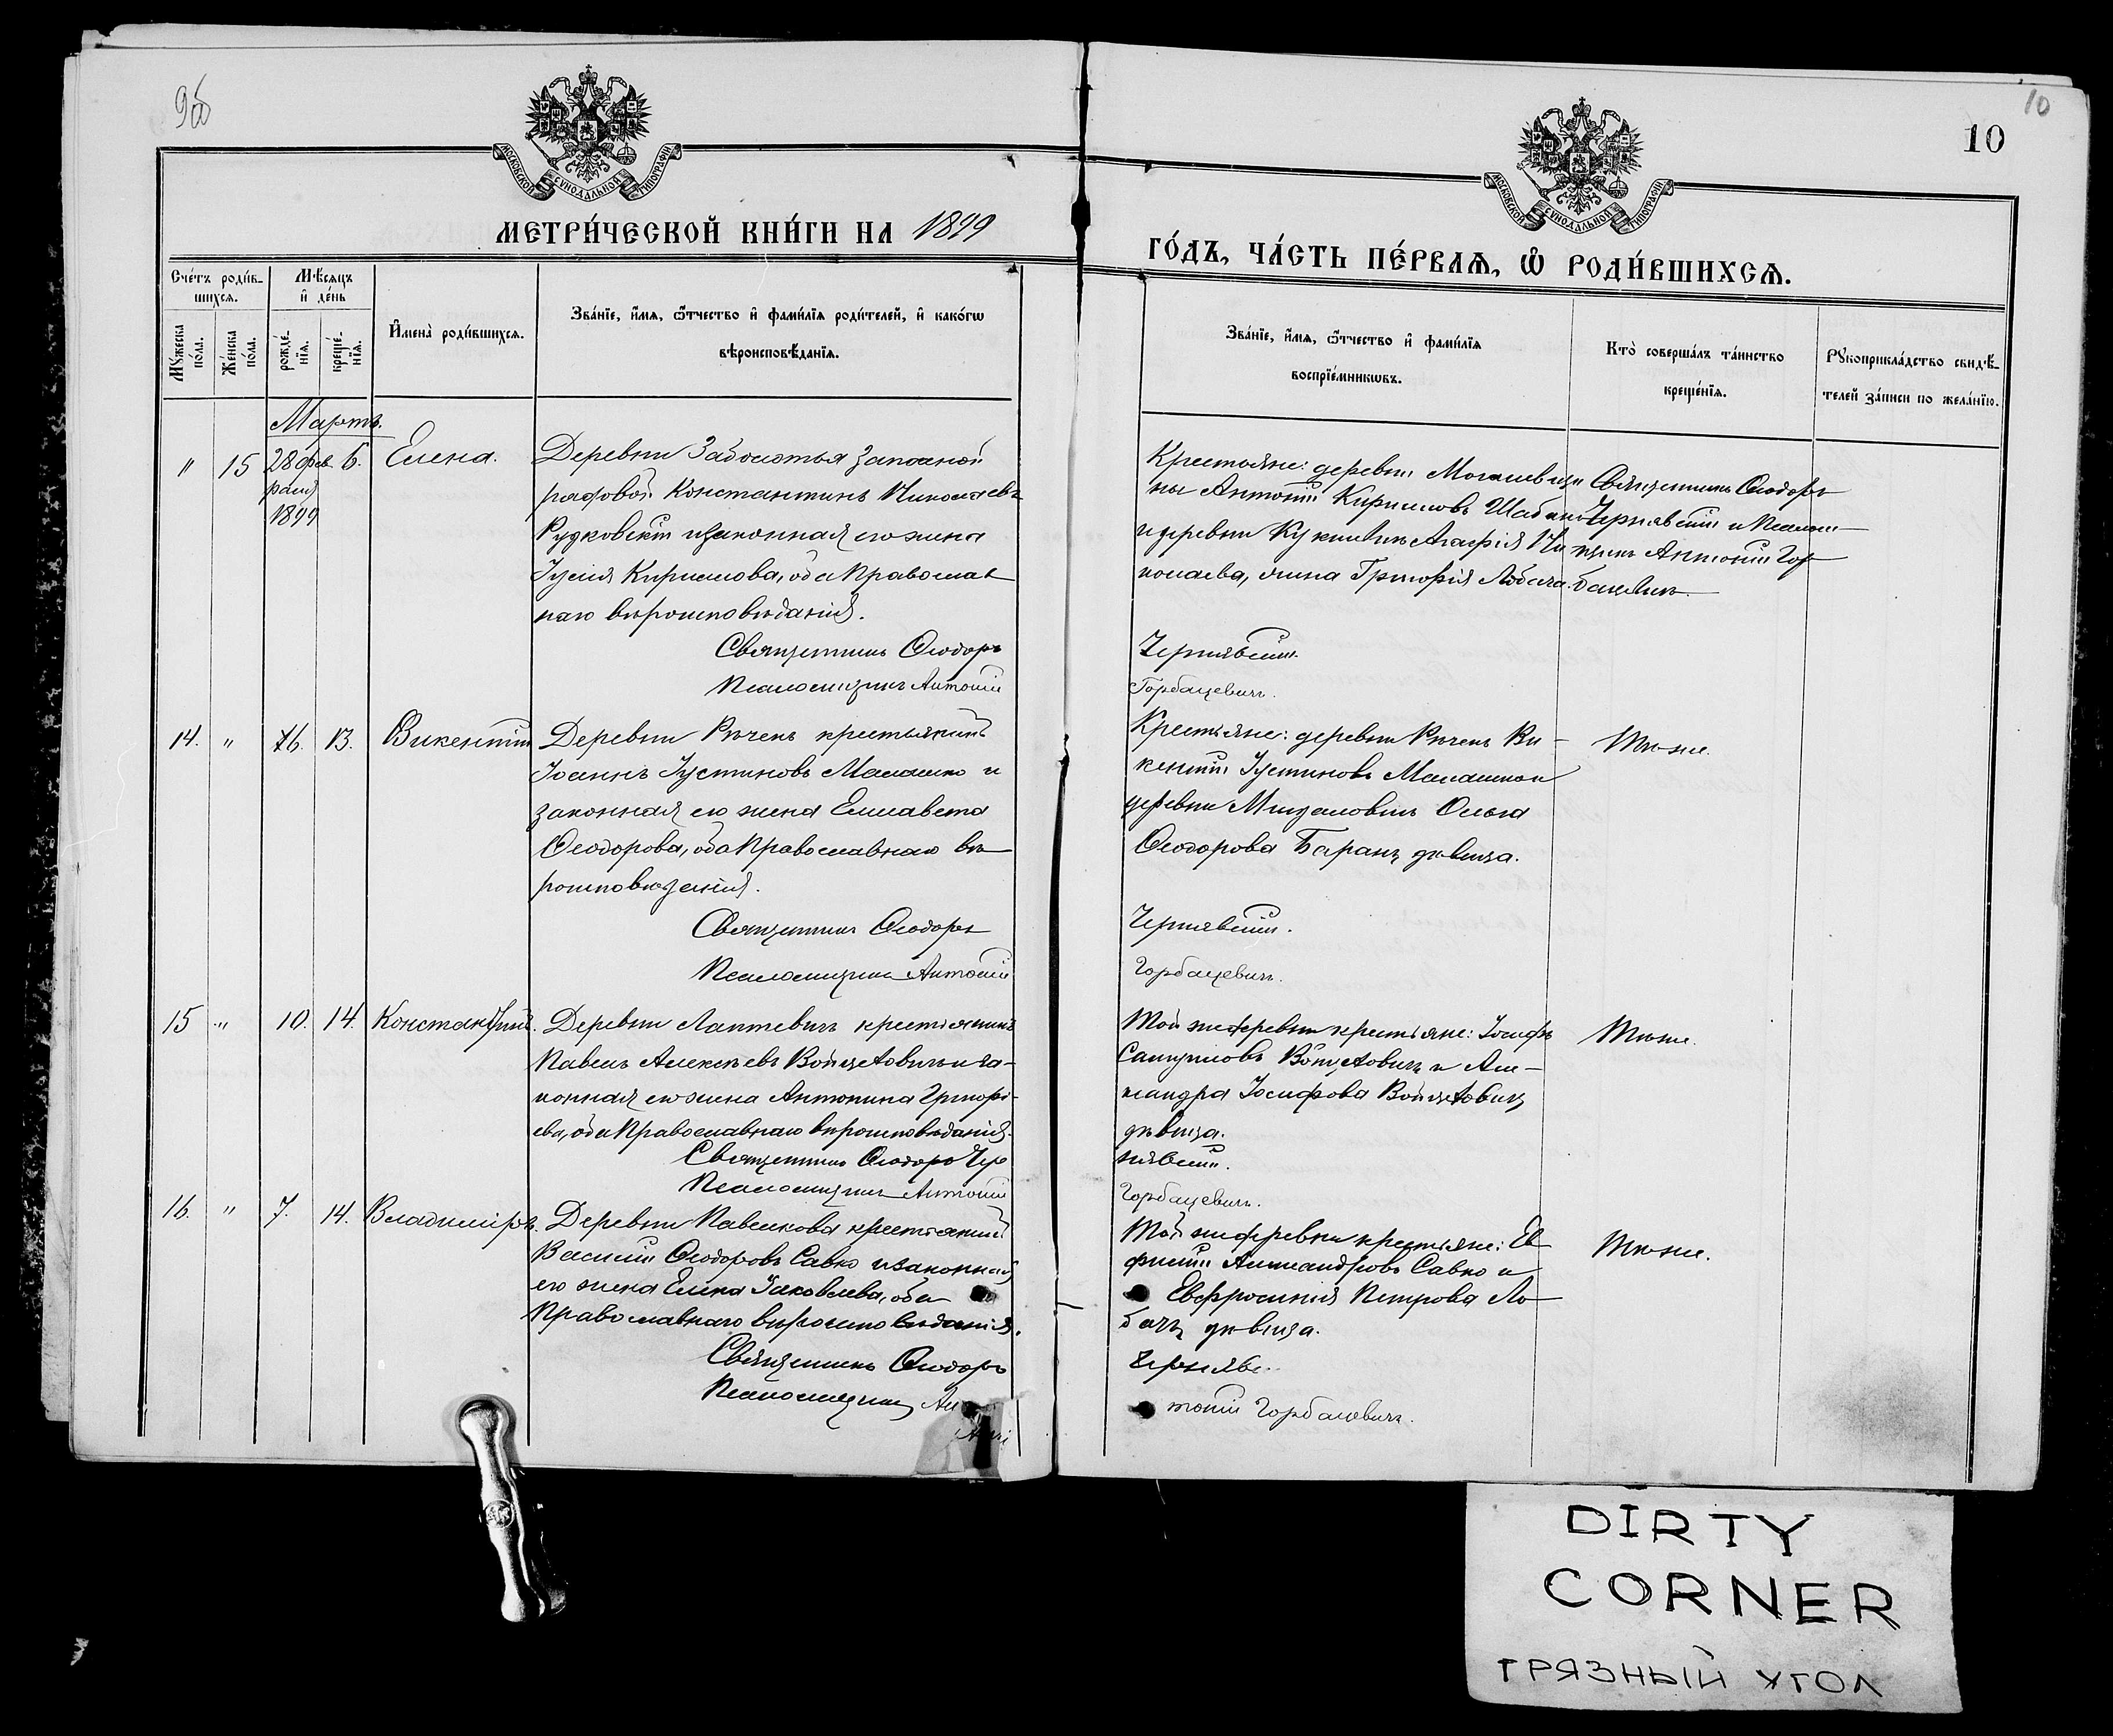 9об
10
10
МОСКОВСКОЙ СУНОДАЛЬНОЙ ТИПОГРАФІИ
МОСКОВСКОЙ СУНОДАЛЬНОЙ ТИПОГРАФІИ
МЕТРИ́ЧЕСКОЙ КНИ́ГИ НА 1899
ГО́ДЪ, ЧА́СТЬ ПЕ́РВАѦ, Ѡ҆ РОДИ́ВШИХСѦ.
Сче́тъ роди́в-
шихсѧ.
Мꙋ́жеска
по́ла.
Же́нска
по́ла.
Мѣ́сѧцъ
и҆ де́нь
рожде́-
нїѧ.
креще́-
нїѧ.
И҆мена̀ роди́вшихсѧ.
Зва́нїе, и҆́мѧ, ѻ҆́тчество и҆ фами́лїѧ роди́телей, и҆ како́гѡ
вѣроисповѣ́данїѧ.
Зва́нїе, и҆́мѧ, ѻ҆́тчество и҆ фами́лїѧ
воспрїе́мникѡвъ.
Кто̀ соверша́лъ та́инство
креще́нїѧ.
Рꙋкоприкла́дство свидѣ́-
телей за́писи по жела́нїю.
Мартъ.
" 15 28 фев 6. Елена.
раля
1899
Деревни Заболотья запасной
рядовой Константинъ Николаевъ
Рудковскій и законная его жена
Іулія Кириллова, оба Православ
наго вѣроисповѣданія.
Священникъ Ѳеодоръ
Псаломщикъ Антоній
Крестьяне: деревни
ны Антоній Кирилловъ
и деревни Агафія Ни
колаева, жена Григорія Лобача.
Священникъ Ѳеодоръ
Чернявскій и Псалом
щикъ Антоній Гор
бацевичъ.
Чернявскій.
Горбацевичъ.
14. " 6. 13. Викентій
Деревни Рѣчень крестьянинъ
Іоаннъ Іустиновъ Малашко и
законная его жена Елисавета
Ѳеодорова, оба Православнаго вѣ
роисповѣданія.
Священникъ Ѳеодоръ
Псаломщикъ Антоній
Крестьяне: деревни Рѣчень Ви-
кентій Іустиновъ Малашко и
деревни Ольга
Ѳеодорова Баранъ дѣвица.
Тѣ-же.
Чернявскій.
Горбацевичъ.
15 " 10. 14. Константинъ.
Деревни Лаптевичъ крестьянинъ
Павелъ Алексѣевъ Войцеховичъ и за-
конная его жена Антонина Григорі-
ева, оба Православнаго вѣроисповѣданія.
Священникъ Ѳеодоръ Чер
Псаломщикъ Антоній
Той же деревни крестьяне: Іосифъ
Самуиловъ Войцеховичъ и Але-
ксандра Іосифова Войцеховичъ
дѣвица.
Тѣ-же.
нявскій.
Горбацевичъ.
16. " 7. 14. Владиміръ.
Деревни Павликова крестьянинъ
Василій Ѳеодоровъ Савко и законная
его жена Елена Іаковлева, оба
Православнаго вѣроисповѣданія.
Священникъ Ѳеодоръ
Псаломщикъ Ан
Той же деревни крестьяне: Ев
фимій Александровъ Савко и
Евфросинія Петрова Ло
бачъ дѣвица.
Тѣ-же.
Чернявс
тоній Горбацевичъ.
DIRTY
CORNER
ГРЯЗНЫЙ УГОЛ